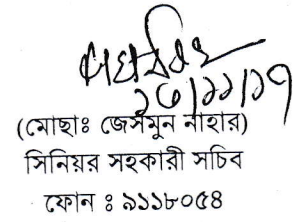 ১৩/১১/১৭
(মোছাঃ জেসমুন নাহার)
সিনিয়র সহকারী সচিব
ফোন ঃ ৯১১৮০৫৪